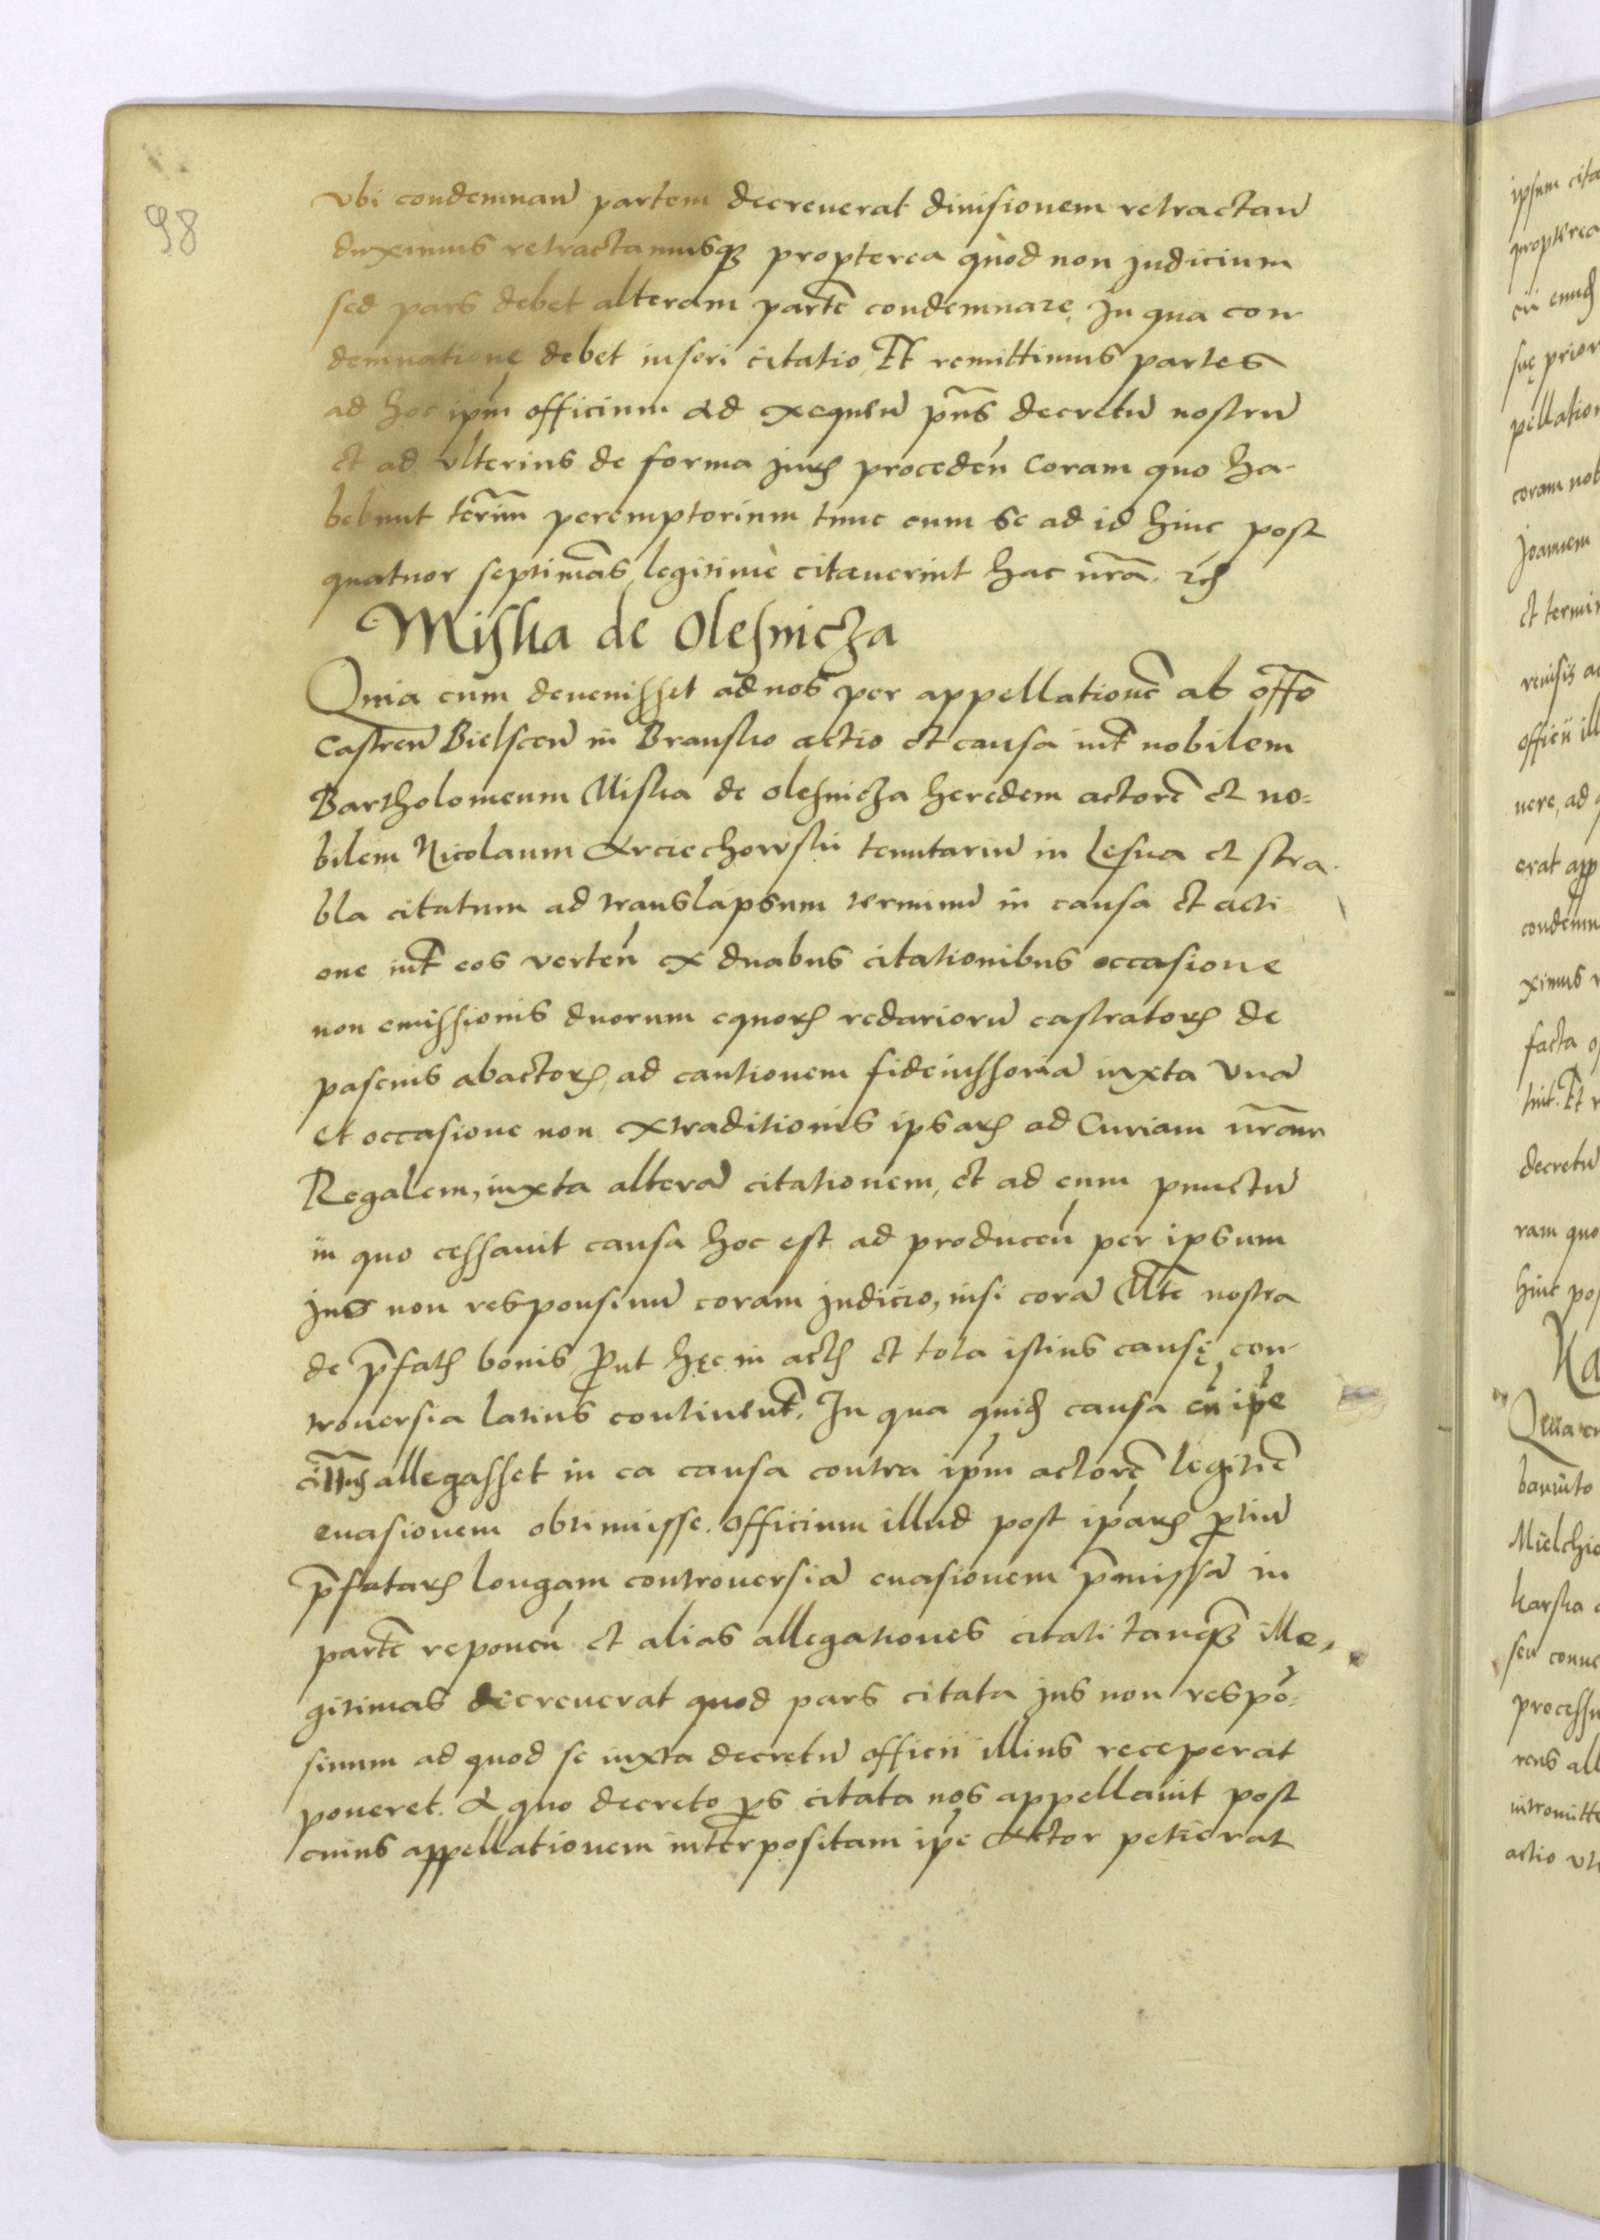 98
vbi condemnan̄ partem decreuerat diuisionem retractan̄
duximus retractamusq3 propterea quòd non judicium
sed pars debet alteram partē condemnare. In qua con-
demnatione debet inseri citatio. Et remittimus partes
ad hoc ipm̄ officium ad exequen̄ pn̄s decretū nostrū
et ad vlterius de forma juris proceden̄ coram quo ha-
bebunt term̄ peremptorium tunc cum se ad id hinc post
quatuor septimās legitimè citauerint hac nrā. rc̄
Miska de Olesnicza
Quia cum deuenisset ad nos per appellationē ab offo
Castren̄ Bielscen̄ in Bransko actio et causa int̄ nobilem
Bartholomeum Miska de olesnicza heredem actorē et no=
bilem Nicolaum Arciechowski tenutariū in Lesna et stra-
bla citatum ad translapsum terminū in causa et acti-
one int̄ eos verten̄ ex duabus citationibus occasione
non emissionis duorum equorum redariorū castratorum de
pascuis abactorum, ad cautionem fideiussoriā iuxta vnā
et occasione non extraditionis ipsarum ad Curiam nrām
Regalem, iuxta alterā citationem, et ad eum punctū
in quo cessauit causa hoc est ad producen̄ per ipsum
jus non responsiuū coram judicio, nisi corā Mtē nostra
de p̄fatis bonis p̄ut hęc in actis et tota istius causę con-
trouersia latius continent̄. In qua quid causa cū ip̄e
citatus allegasset in ea causa contra ipm̄ actorē legitiē
euasionem obtinuisse. Officium illud post ip̄arum p̄tiū
p̄fatarum longam controuersiā euasionem p̄missā in
partē reponen̄ et alias allegationes citati tanq3 ille,
gitimas decreuerat quod pars citata jus non respō=
siuum ad quod se iuxta decretū officii illius receperat
poneret. A quo decreto p̄s citata nos appellauit post
cuius appellationem interpositam ip̄e Actor petierat